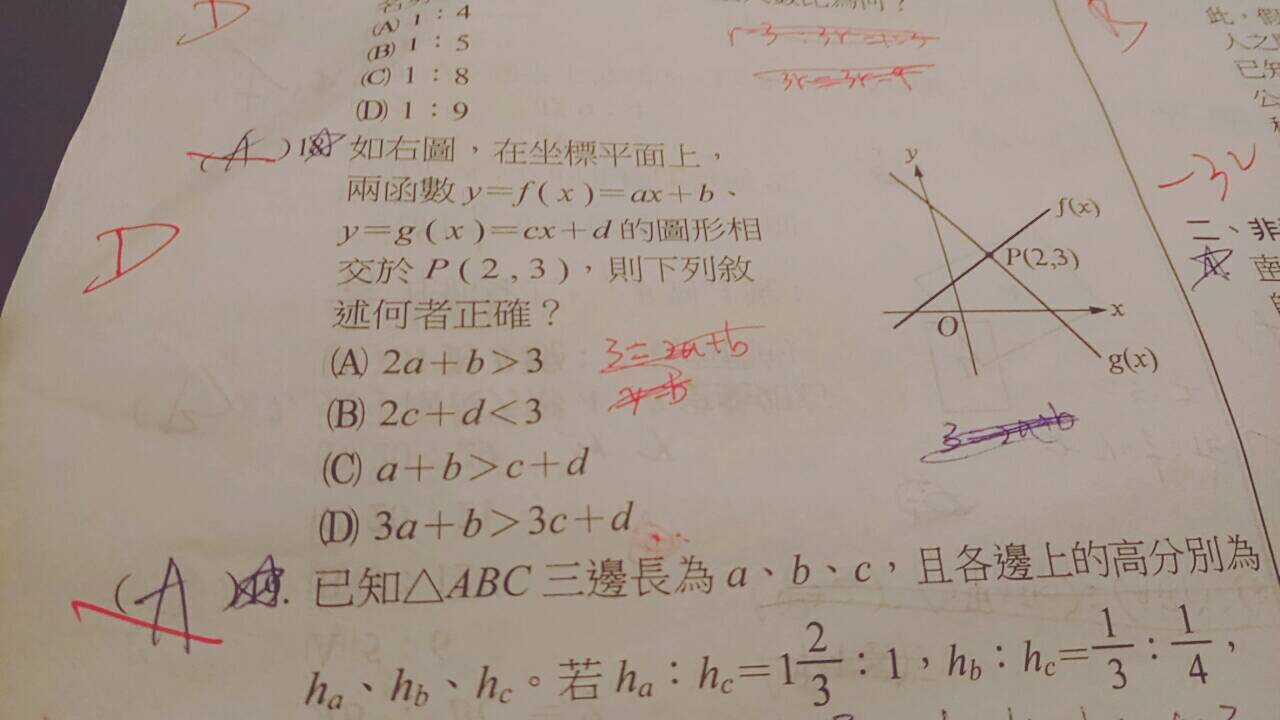 D
(A) 1：4
(B) 1：5
(C) 1：8
(D) 1：9
(A)18. 如右圖，在坐標平面上，
兩函數 y＝f(x)＝ax＋b、
y＝g(x)＝cx＋d 的圖形相
交於 P(2,3)，則下列敘
述何者正確？
(A) 2a＋b＞3
(B) 2c＋d＜3
(C) a＋b＞c＋d
(D) 3a＋b＞3c＋d
D
3＝2a＋b
y
f(x)
P(2,3)
x
O
g(x)
3＝2a＋b
(A)19. 已知△ABC 三邊長為 a、b、c，且各邊上的高分別為
hₐ、h_b、h_c。若 hₐ：h_c＝1 2/3：1，h_b：h_c＝1/3：1/4，
B
此，假
人之
已知
公
－3
二、非